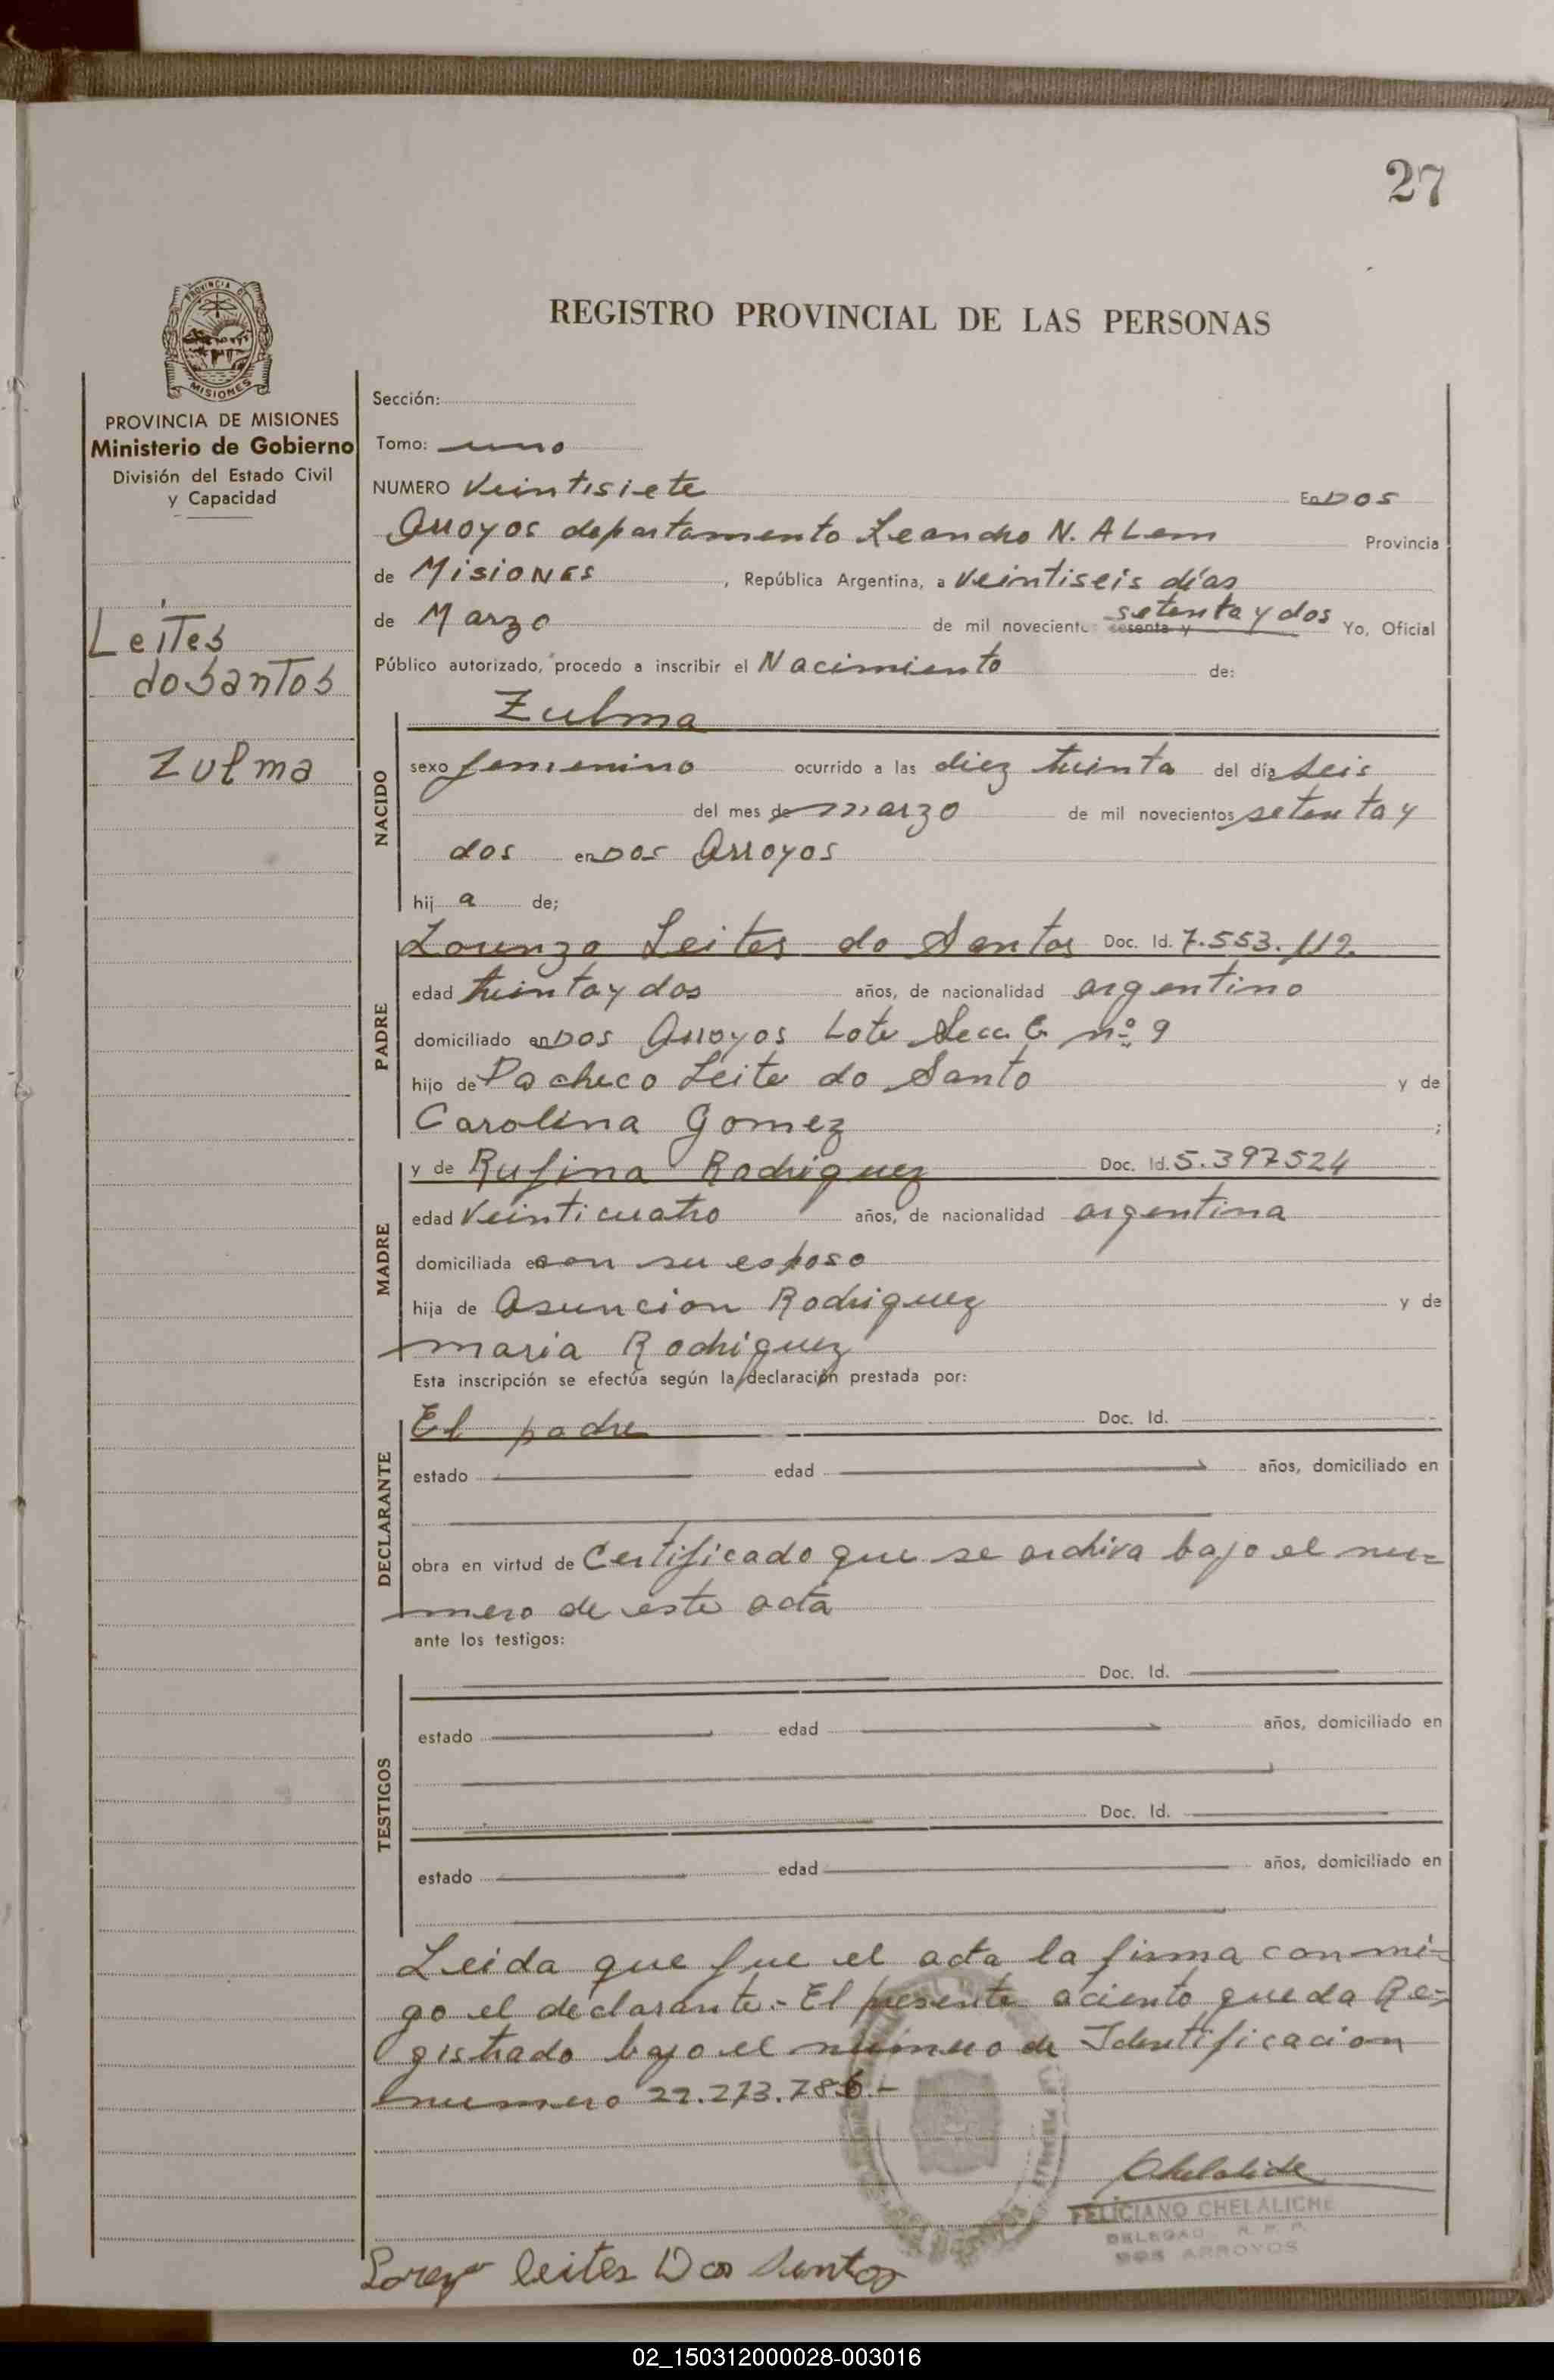 27
PROVINCIA DE
MISIONES
REGISTRO PROVINCIAL DE LAS PERSONAS
PROVINCIA DE MISIONES
Ministerio de Gobierno
División del Estado Civil
y Capacidad
Leites
dosantos
Zulma
Sección:
Tomo: uno
NUMERO Veintisiete En DOS
Arroyos departamento Leandro N. ALem Provincia
de MisioNes, República Argentina, a Veintiseis días
de Marzo de mil novecientos sesenta y setenta y dos Yo, Oficial
Público autorizado, procedo a inscribir el Nacimiento de:
NACIDO
Zulma
sexo femenino ocurrido a las diez treinta del día seis
del mes de marzo de mil novecientos setenta y
dos en Dos Arroyos
hij a de;
PADRE
Lorenzo Leites do Santos Doc. Id. 7.553.112.
edad treinta y dos años, de nacionalidad argentino
domiciliado en Dos Arroyos Lote Secc. nº 9
hijo de Pacheco Leite do Santo y de
Carolina Gomez ;
MADRE
y de Rufina Rodriguez Doc. Id. 5.397524
edad Veinticuatro años, de nacionalidad argentina
domiciliada en con su esposo
hija de Asuncion Rodriguez y de
maria Rodriguez
Esta inscripción se efectúa según la declaración prestada por:
DECLARANTE
El padre Doc. Id.
estado edad años, domiciliado en
obra en virtud de Certificado que se archiva bajo el nu=
mero de este acta
ante los testigos:
TESTIGOS
Doc. Id.
estado edad años, domiciliado en
Doc. Id.
estado edad años, domiciliado en
Leida que fue el acta la firma conmi=
go el declarante.- El presente aciento queda Re=
gistrado bajo el numero de Identificacion
numero 22.273.786.-
Chelaliche
FELICIANO CHELALICHE
DELEGADO R. P. P.
DOS ARROYOS
Lorenzo leites Dos Santos
02_150312000028-003016